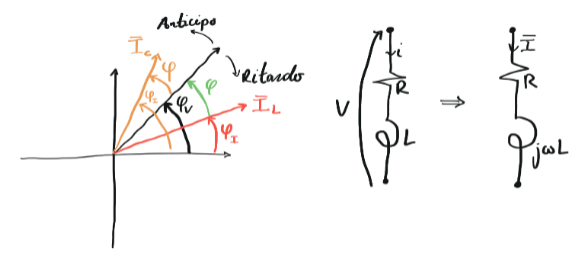 Anticipo
Ritardo
Ī_C
φ
φ_I
φ_V
φ
Ī_L
φ_I
V
i
R
L
⇒
Ī
R
jωL